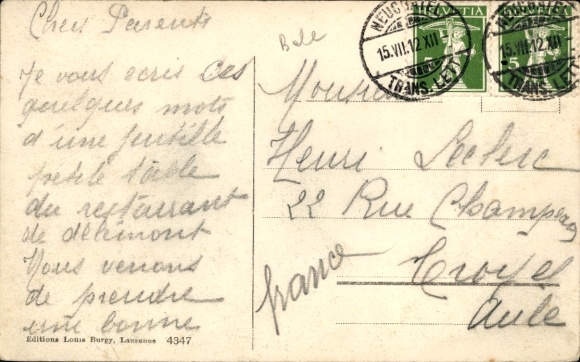 Chers Parents
Je vous ecris ces
quelques mots
d'une gentille
petite table
du restaurant
de délémont
Nous venons
de prendre
une bonne
Editions Louis Burgy, Lausanne 4347
Bale
NEUCHATEL
15.VII.12.XII
TRANS.LETT.
HELVETIA
NEUCHATEL
15.VII.12.XII
TRANS.LETT.
5
Monsieur
Henri Leclerc
22 Rue Champeaux
Troyes
Aube
france